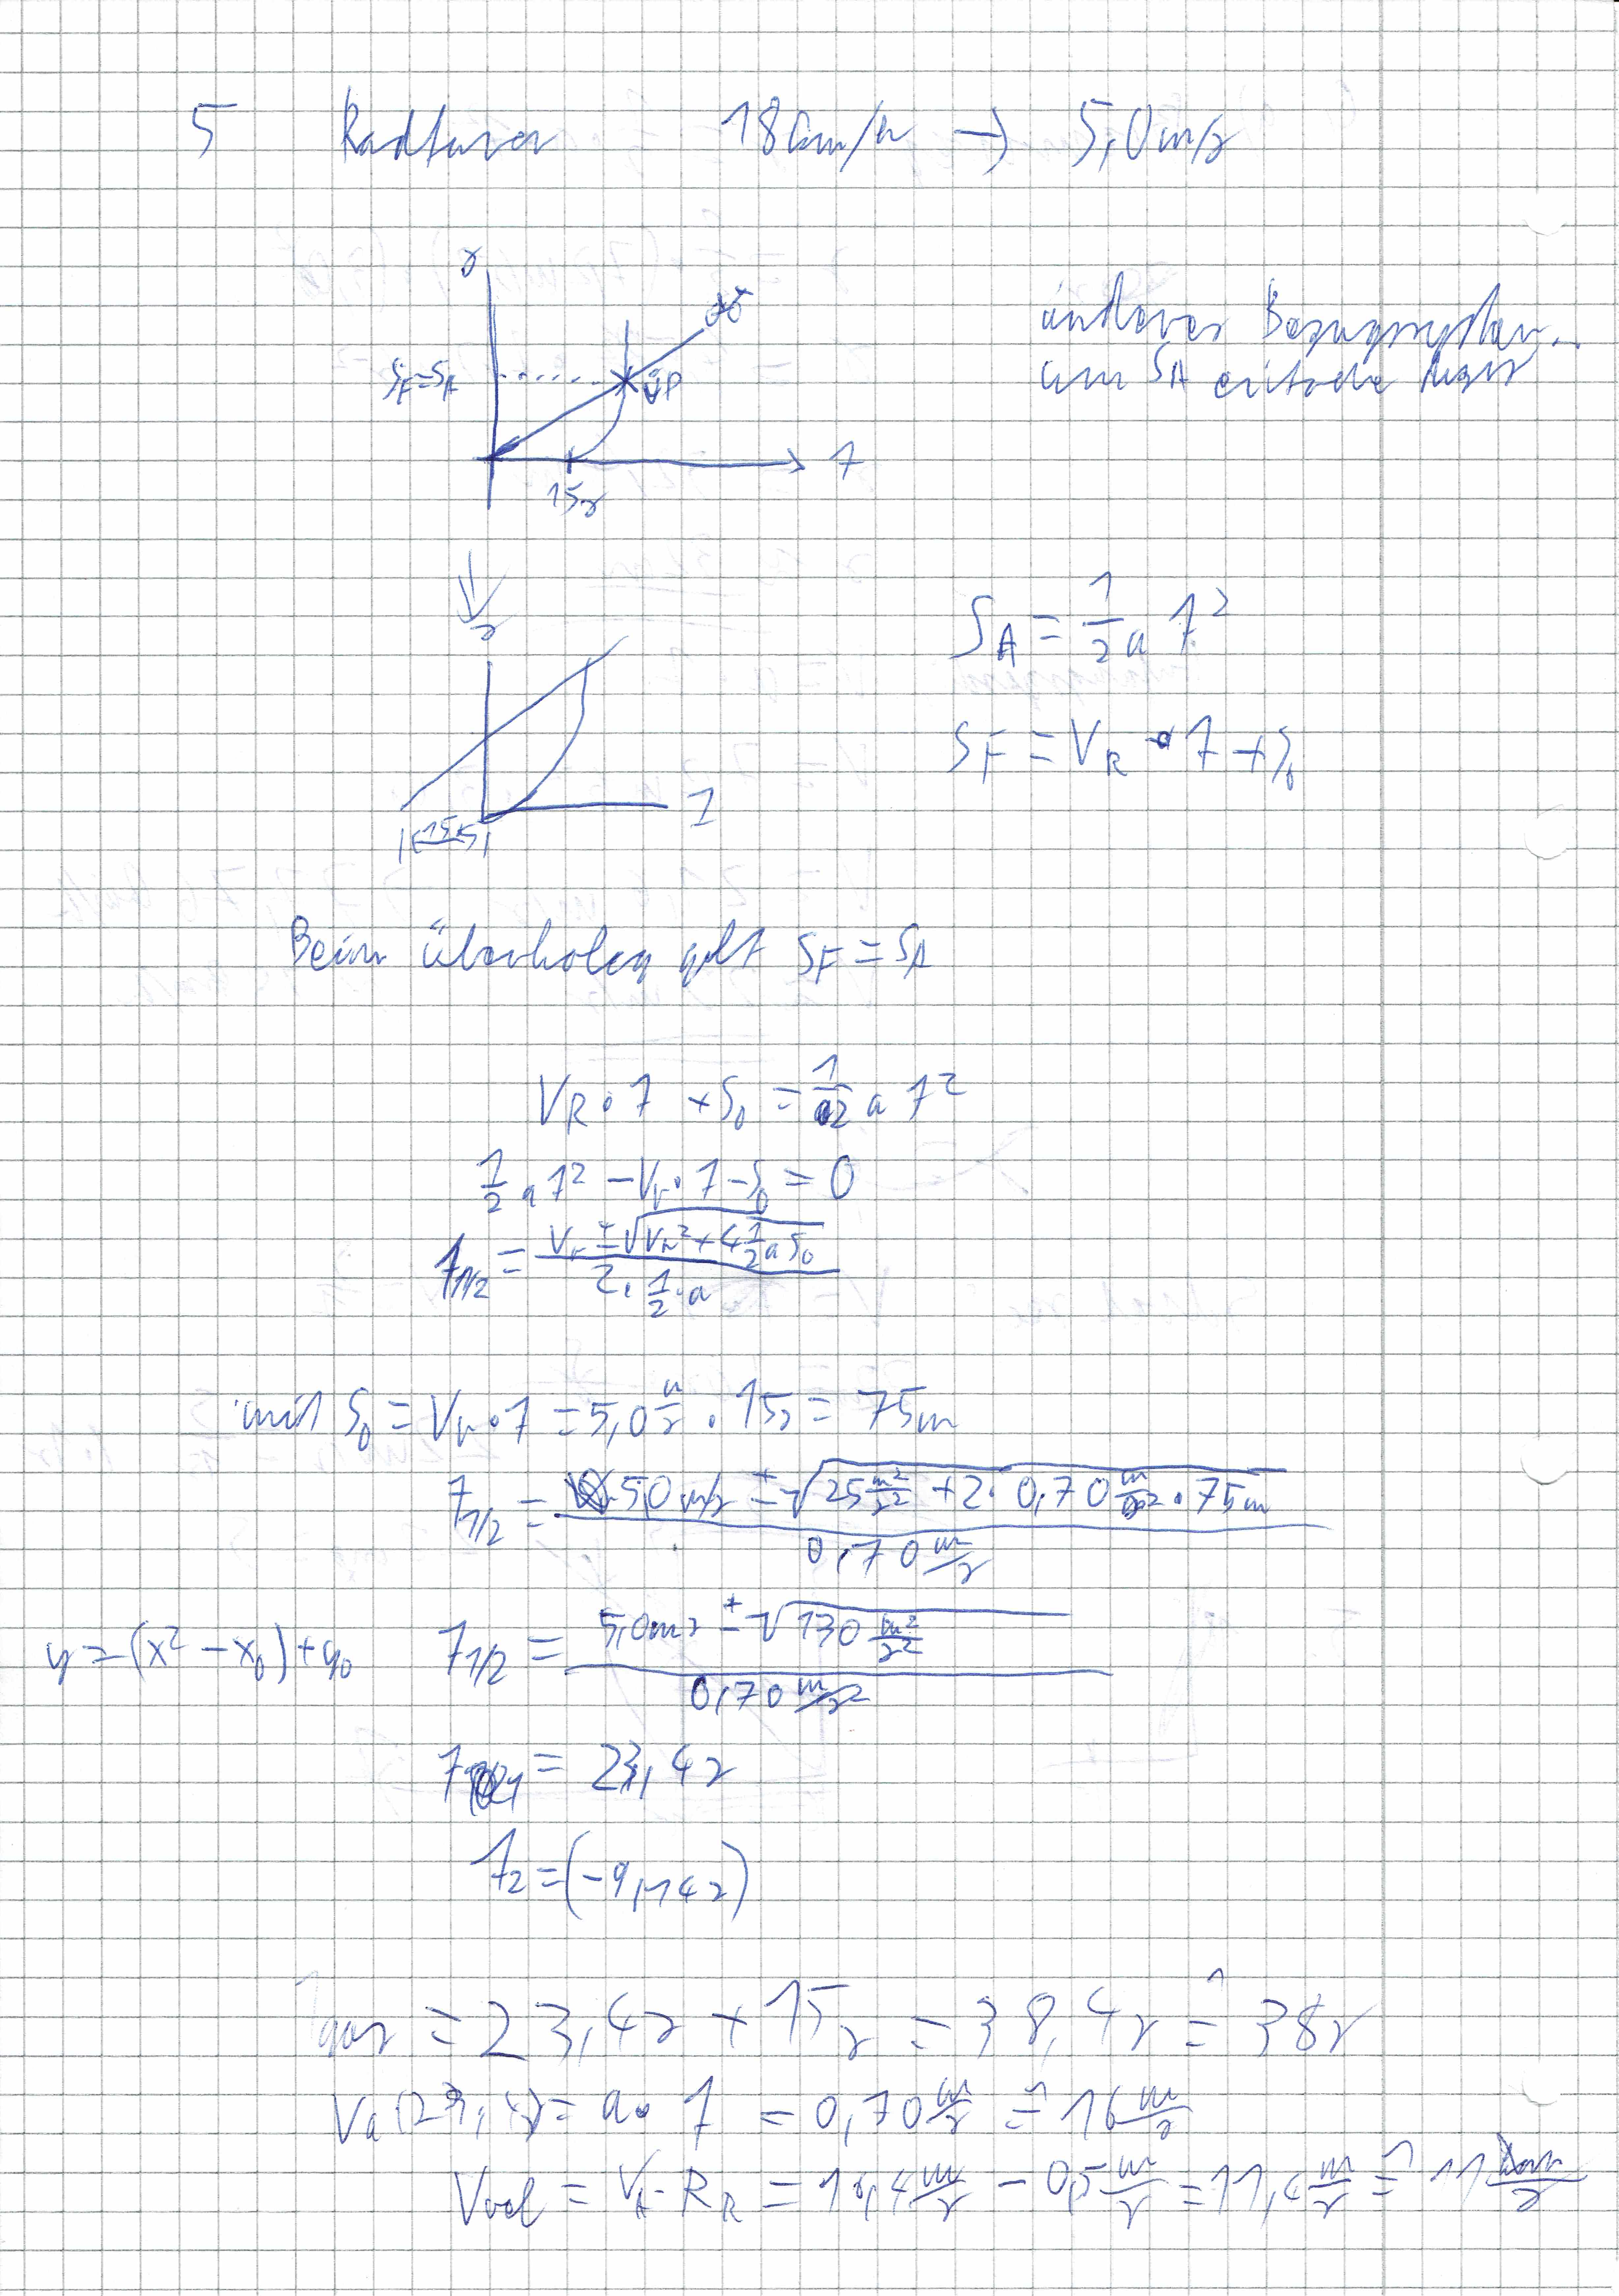 5 Radfahrer 18km/h → 5,0m/s
s
anderes Bezugssystem..
um SA einfache
SF=SA
ÜP
t
15s
s
SA = 1/2 a t²
SF = VR • t + S0
t
15s
Beim überholen gilt SF = SA
VR • t + S0 = 1/2 a t²
1/2 a t² - Vr • t - S0 = 0
t1/2 = (Vr ± √(Vr² + 4 1/2 a S0)) / (2 • 1/2 • a)
mit S0 = Vr • t = 5,0 m/s • 15s = 75m
t1/2 = (5,0 m/s ± √(25 m²/s² + 2 • 0,70 m/s² • 75m)) / (0,70 m/s)
y = (x² - x0) + y0
t1/2 = (5,0m/s ± √(130 m²/s²)) / (0,70 m/s²)
t1 = 23,4s
t2 = (-9,14s)
tges = 23,4s + 15s = 38,4s ≙ 38s
Va(23,4s) = a • t = 0,70 m/s ≙ 16 m/s
Vrel = VA - RR = 16,4 m/s - 0,5 m/s = 11,4 m/s ≙ 11